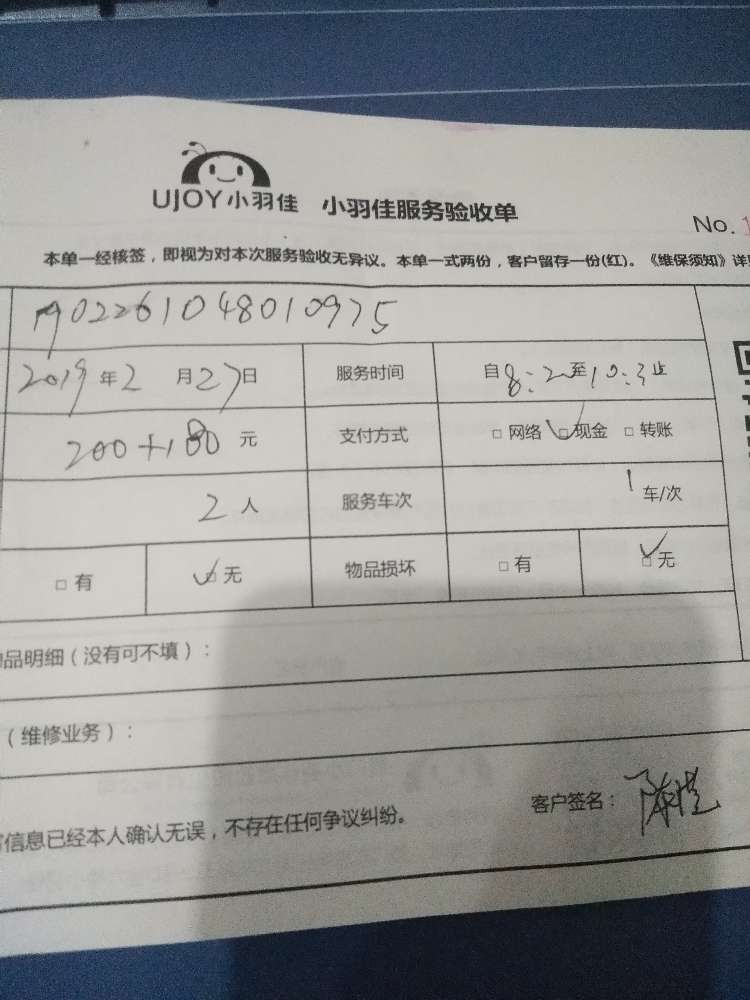 UJOY小羽佳 小羽佳服务验收单
No.1
本单一经核签，即视为对本次服务验收无异议。本单一式两份，客户留存一份(红)。《维保须知》详
1902261048010975
2019年2月27日 服务时间 自8:2至10:3止
200+180元 支付方式 □网络 □现金 □转账
2人 服务车次 1车/次
□有 □无 物品损坏 □有 □无
品明细（没有可不填）：
（维修业务）：
信息已经本人确认无误，不存在任何争议纠纷。
客户签名：陈